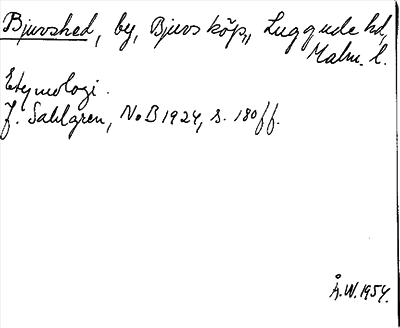 Bjuvshed, by, Bjuvs köp., Luggude hd,
Malm. l.
Etymologi.
J. Sahlgren, NoB 1924, s. 180 ff.
Å.W. 1954.